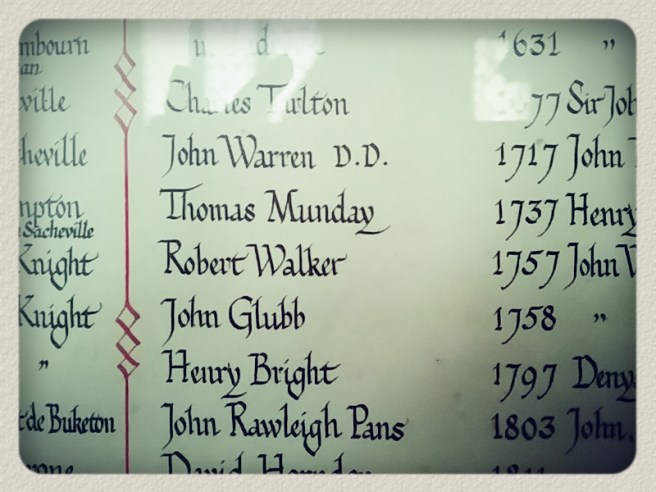 mbourn 1631 "
an
ville Charles Tarlton 77 Sir Joh
heville John Warren D.D. 1717 John
mpton Thomas Munday 1737 Henry
Sacheville
Knight Robert Walker 1757 John W
Knight John Glubb 1758 "
" Henry Bright 1797 Deny
de Buketon John Rawleigh Pans 1803 John